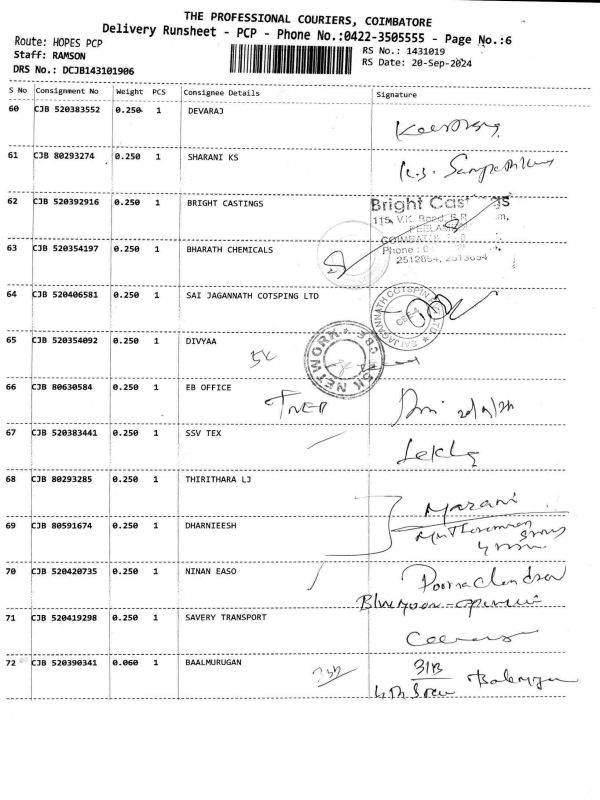 THE PROFESSIONAL COURIERS, COIMBATORE
Delivery Runsheet - PCP - Phone No.:0422-3505555 - Page No.:6
Route: HOPES PCP
RS No.: 1431019
Staff: RAMSON
RS Date: 20-Sep-2024
DRS No.: DCJB143101906
S No Consignment No Weight PCS Consignee Details Signature
60 CJB 520383552 0.250 1 DEVARAJ
61 CJB 80293274 0.250 1 SHARANI KS
62 CJB 520392916 0.250 1 BRIGHT CASTINGS
Bright
63 CJB 520354197 0.250 1 BHARATH CHEMICALS
Phone :
64 CJB 520406581 0.250 1 SAI JAGANNATH COTSPING LTD
65 CJB 520354092 0.250 1 DIVYAA
5K
5K NETWORK
66 CJB 80630584 0.250 1 EB OFFICE
TNEB
67 CJB 520383441 0.250 1 SSV TEX
Lekha
68 CJB 80293285 0.250 1 THIRITHARA LJ
Marani
69 CJB 80591674 0.250 1 DHARNIEESH
70 CJB 520420735 0.250 1 NINAN EASO
71 CJB 520419298 0.250 1 SAVERY TRANSPORT
72 CJB 520390341 0.060 1 BAALMURUGAN
31B